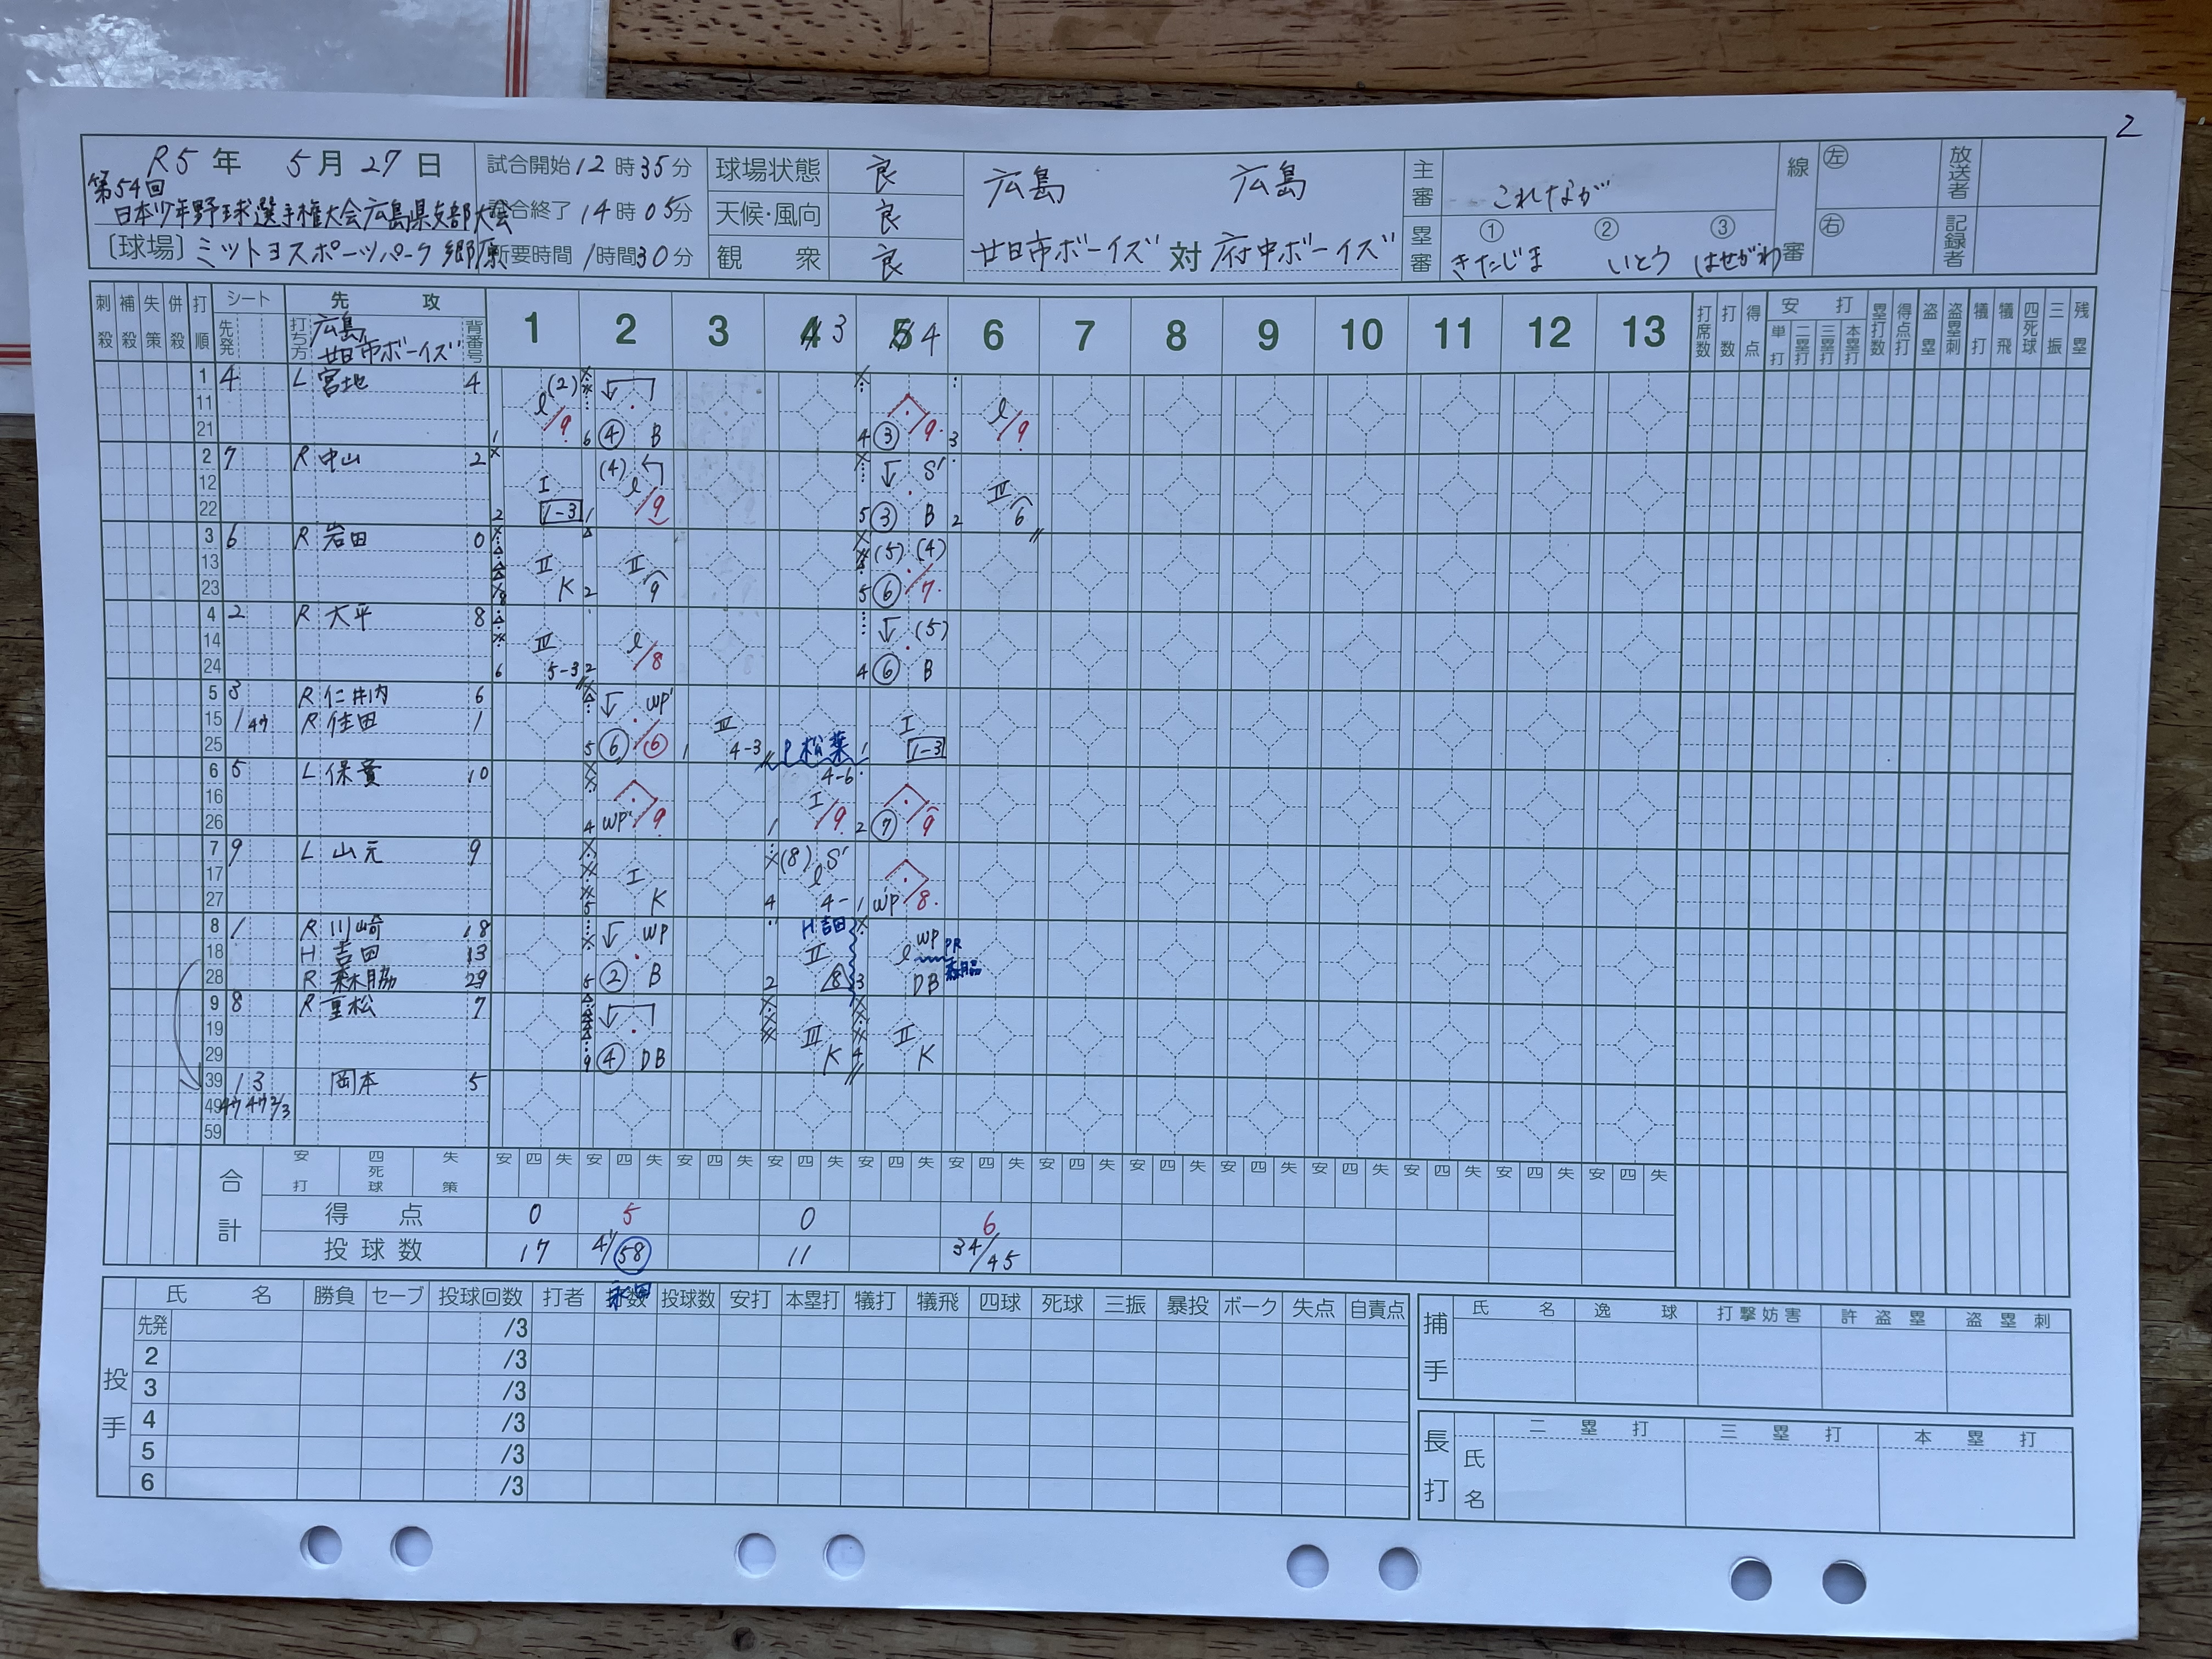 2
R5年 5月27日
第54回
日本少年野球選手権大会広島県支部大会
〔球場〕ミットヨスポーツパーク郷原
試合開始 12時35分
試合終了 14時05分
所要時間 1時間30分
球場状態 良
天候・風向 良
観衆 良
広島 広島
廿日市ボーイズ 対 府中ボーイズ
主審 これなが
塁審 ① ② ③
きたじま いとう はせがわ
線審 左 右
放送者
記録者
刺殺 補殺 失策 併殺 打順 シート 先発 先攻 打ち方 広島 廿日市ボーイズ 背番号
1 2 3 4 3 5 4 6 7 8 9 10 11 12 13
打席数 打数 得点 安打 単打 二塁打 三塁打 本塁打 塁打数 得点打 盗塁 盗塁刺 犠打 犠飛 四死球 三振 残塁
1 4 L 宮地 4
11
21
l (2) /9 1
6 ④ B
4 ③ /9
3 l /9
2 7 R 中山 2
12
22
2 I 1-3
1 (4) l /9
5 ③ S' B
2 IV 6
3 6 R 岩田 0
13
23
8 II K
2 II 9
5 (5) (4) ⑥ /7
4 2 R 大平 8
14
24
6 IV 5-3
2 l /8
4 (5) ⑥ B
5 3 R 仁井内 6
15 1 R 住田 1
25
5 WP' ⑥ /⑥
1 IV 4-3
P 松葉
1 I 1-3
6 5 L 保貴 10
16
26
4 WP' /9
4-6 1 I /9
2 ⑦ 9
7 9 L 山元 9
17
27
5 I K
4 (8) S' l 4-
1 WP /8
8 1 R 川崎 18
18 H 吉田 13
28 R 森脇 29
5 WP ② B
H 吉田 2 II 8
3 l WP DB PR 森脇
9 8 R 重松 7
19
29
9 ④ DB
III K
4 II K
39 1 3 岡本 5
49
59
合計 安打 四死球 失策
安 四 失 安 四 失 安 四 失 安 四 失 安 四 失 安 四 失 安 四 失 安 四 失 安 四 失 安 四 失 安 四 失 安 四 失 安 四 失
得点 0 5 0 6
投球数 17 41/58 11 34/45
投手 氏名 勝負 セーブ 投球回数 打者 打数 投球数 安打 本塁打 犠打 犠飛 四球 死球 三振 暴投 ボーク 失点 自責点
先発 /3
2 /3
3 /3
4 /3
5 /3
6 /3
捕手 氏名 逸球 打撃妨害 許盗塁 盗塁刺
長打 氏名 二塁打 三塁打 本塁打